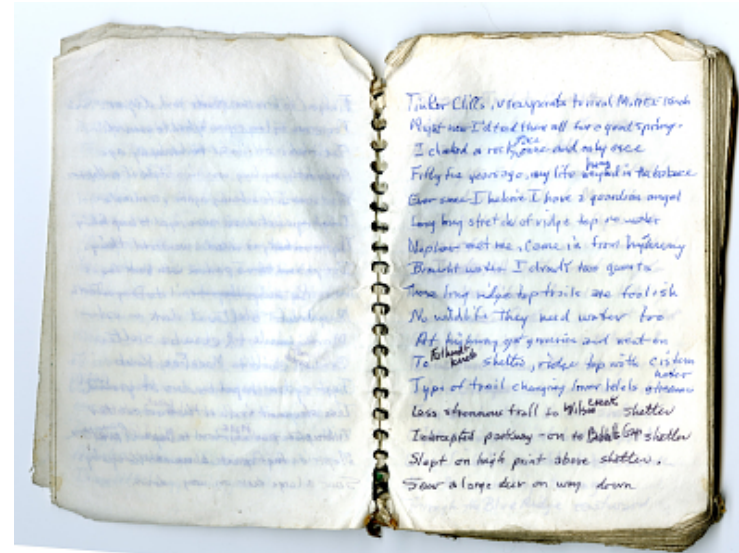 Tinker Cliffs, viewpoints to rival McAfee Knob
Right now I'd trade them all for a good spring.
I climbed a rock face once and only once
Fifty five years ago, my life hung in the balance
Ever since I believe I have a guardian angel
Long long stretch of ridge top no water
Nephew met me, came in from highway
Brought water I drank two quarts
These long ridge top trails are foolish
No wildlife they need water too
At highway got groceries and went on
To Fullhardt Knob shelter, ridge top with cistern water
Type of trail changing lower levels streams
Less strenuous trail to Wilson creek shelter
Intercepted parkway - on to Gap shelter
Slept on high point above shelter.
Saw a large deer on way down